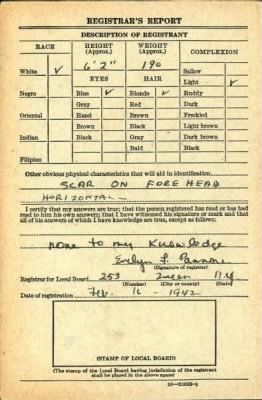 REGISTRAR'S REPORT
DESCRIPTION OF REGISTRANT
RACE HEIGHT (Approx.) WEIGHT (Approx.) COMPLEXION
6' 2" 190
White ✓ EYES HAIR Sallow
Light ✓
Negro Blue ✓ Blonde ✓ Ruddy
Gray Red Dark
Oriental Hazel Brown Freckled
Brown Black Light brown
Indian Black Gray Dark brown
Bald Black
Filipino
Other obvious physical characteristics that will aid in identification
SCAR ON FOREHEAD
HORIZONTAL
I certify that my answers are true; that the person registered has read or has had
read to him his own answers; that I have witnessed his signature or mark and that
all of his answers of which I have knowledge are true, except as follows:
none to my knowledge
Evelyn F.
(Signature of registrar)
Registrar for Local Board 253 N.Y.
(Number) (City or county) (State)
Date of registration Feb. 16 - 1942
(STAMP OF LOCAL BOARD)
(The stamp of the Local Board having jurisdiction of the registrant
shall be placed in the above space)
16-21633-1